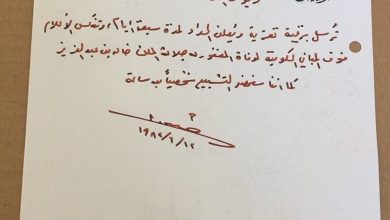 ترسل برقية تعزية ويعلن الحداد لمدة سبعة أيام وتنكس الأعلام
فوق المباني الحكومية لوفاة المغفور له جلالة الملك خالد بن عبد العزيز
كما أننا سنحضر التشييع شخصياً
١٩٨٢/٦/١٢